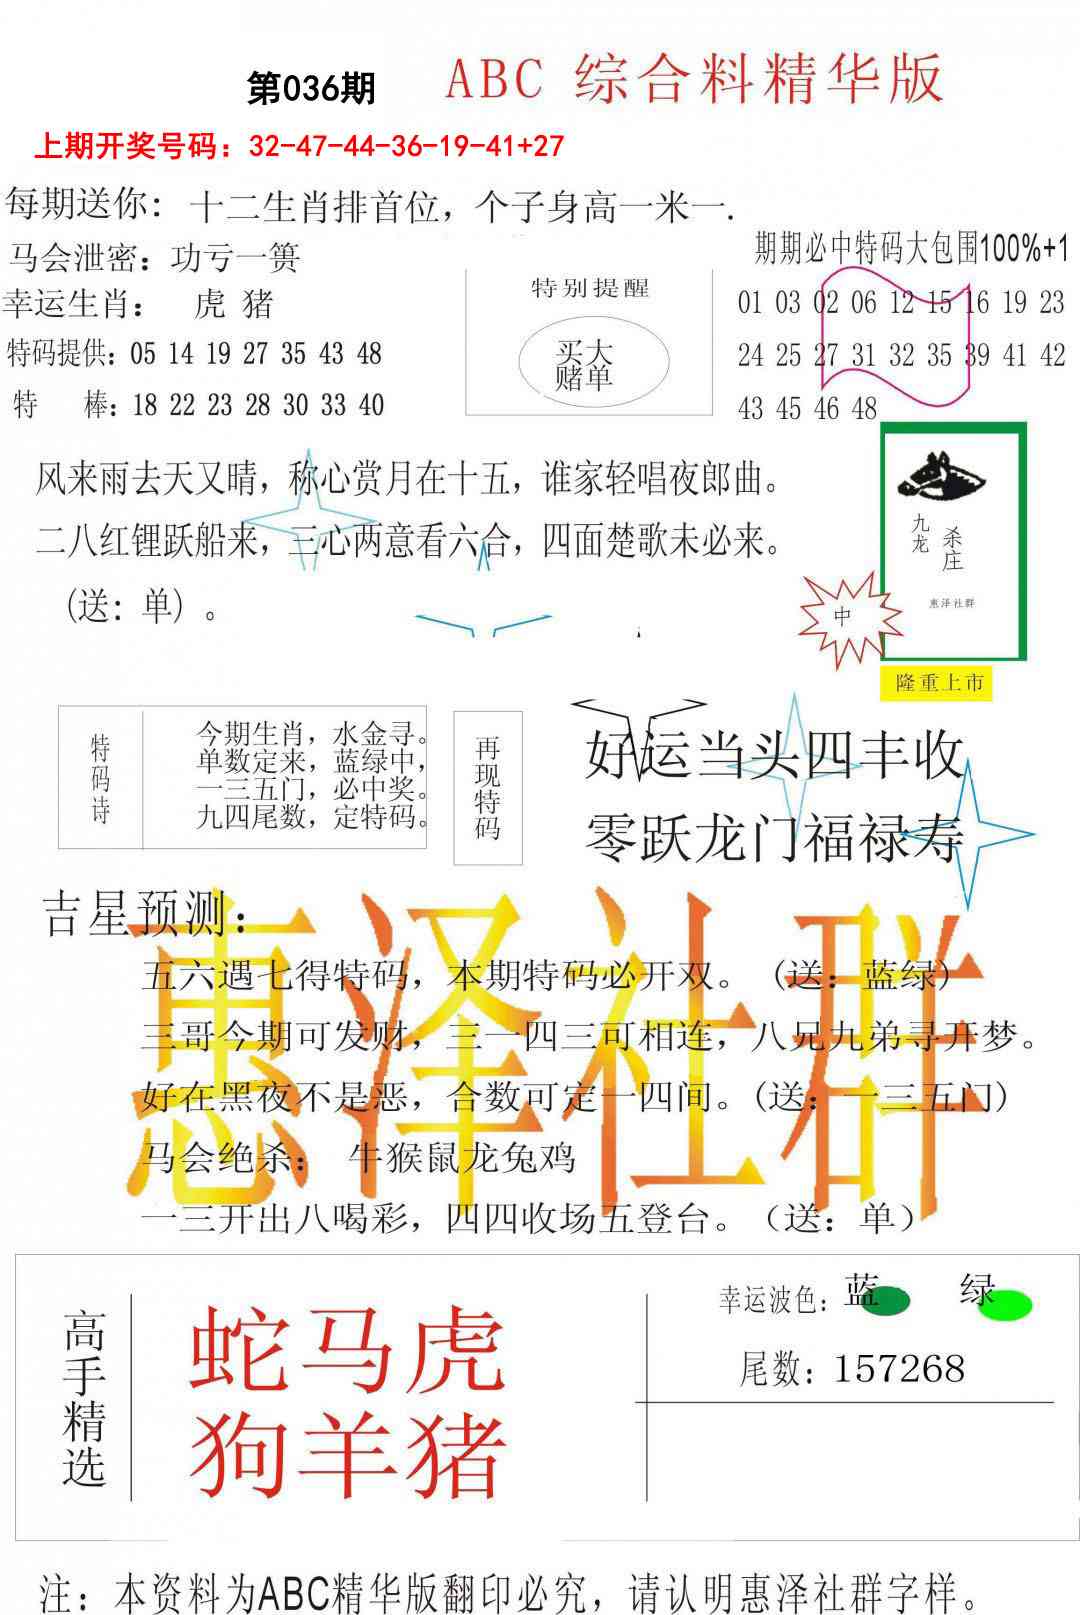 第036期
ABC 综合料精华版
上期开奖号码：32-47-44-36-19-41+27
每期送你：十二生肖排首位，个子身高一米一.
马会泄密：功亏一篑
幸运生肖： 虎 猪
特码提供：05 14 19 27 35 43 48
特 棒：18 22 23 28 30 33 40
特别提醒
买大
赌单
期期必中特码大包围100%+1
01 03 02 06 12 15 16 19 23
24 25 27 31 32 35 39 41 42
43 45 46 48
风来雨去天又晴，称心赏月在十五，谁家轻唱夜郎曲。
二八红锂跃船来，三心两意看六合，四面楚歌未必来。
(送：单）。
九龙
杀庄
惠泽社群
中
隆重上市
特码诗
今期生肖，水金寻。
单数定来，蓝绿中，
一三五门，必中奖。
九四尾数，定特码。
再现特码
好运当头四丰收
零跃龙门福禄寿
吉星预测：
惠泽社群
五六遇七得特码，本期特码必开双。（送：蓝绿）
三哥今期可发财，三一四三可相连，八兄九弟寻开梦。
好在黑夜不是恶，合数可定一四间。(送：一三五门)
马会绝杀： 牛猴鼠龙兔鸡
一三开出八喝彩，四四收场五登台。（送：单）
高手精选
蛇马虎
狗羊猪
幸运波色：蓝 绿
尾数：157268
注：本资料为ABC精华版翻印必究，请认明惠泽社群字样。